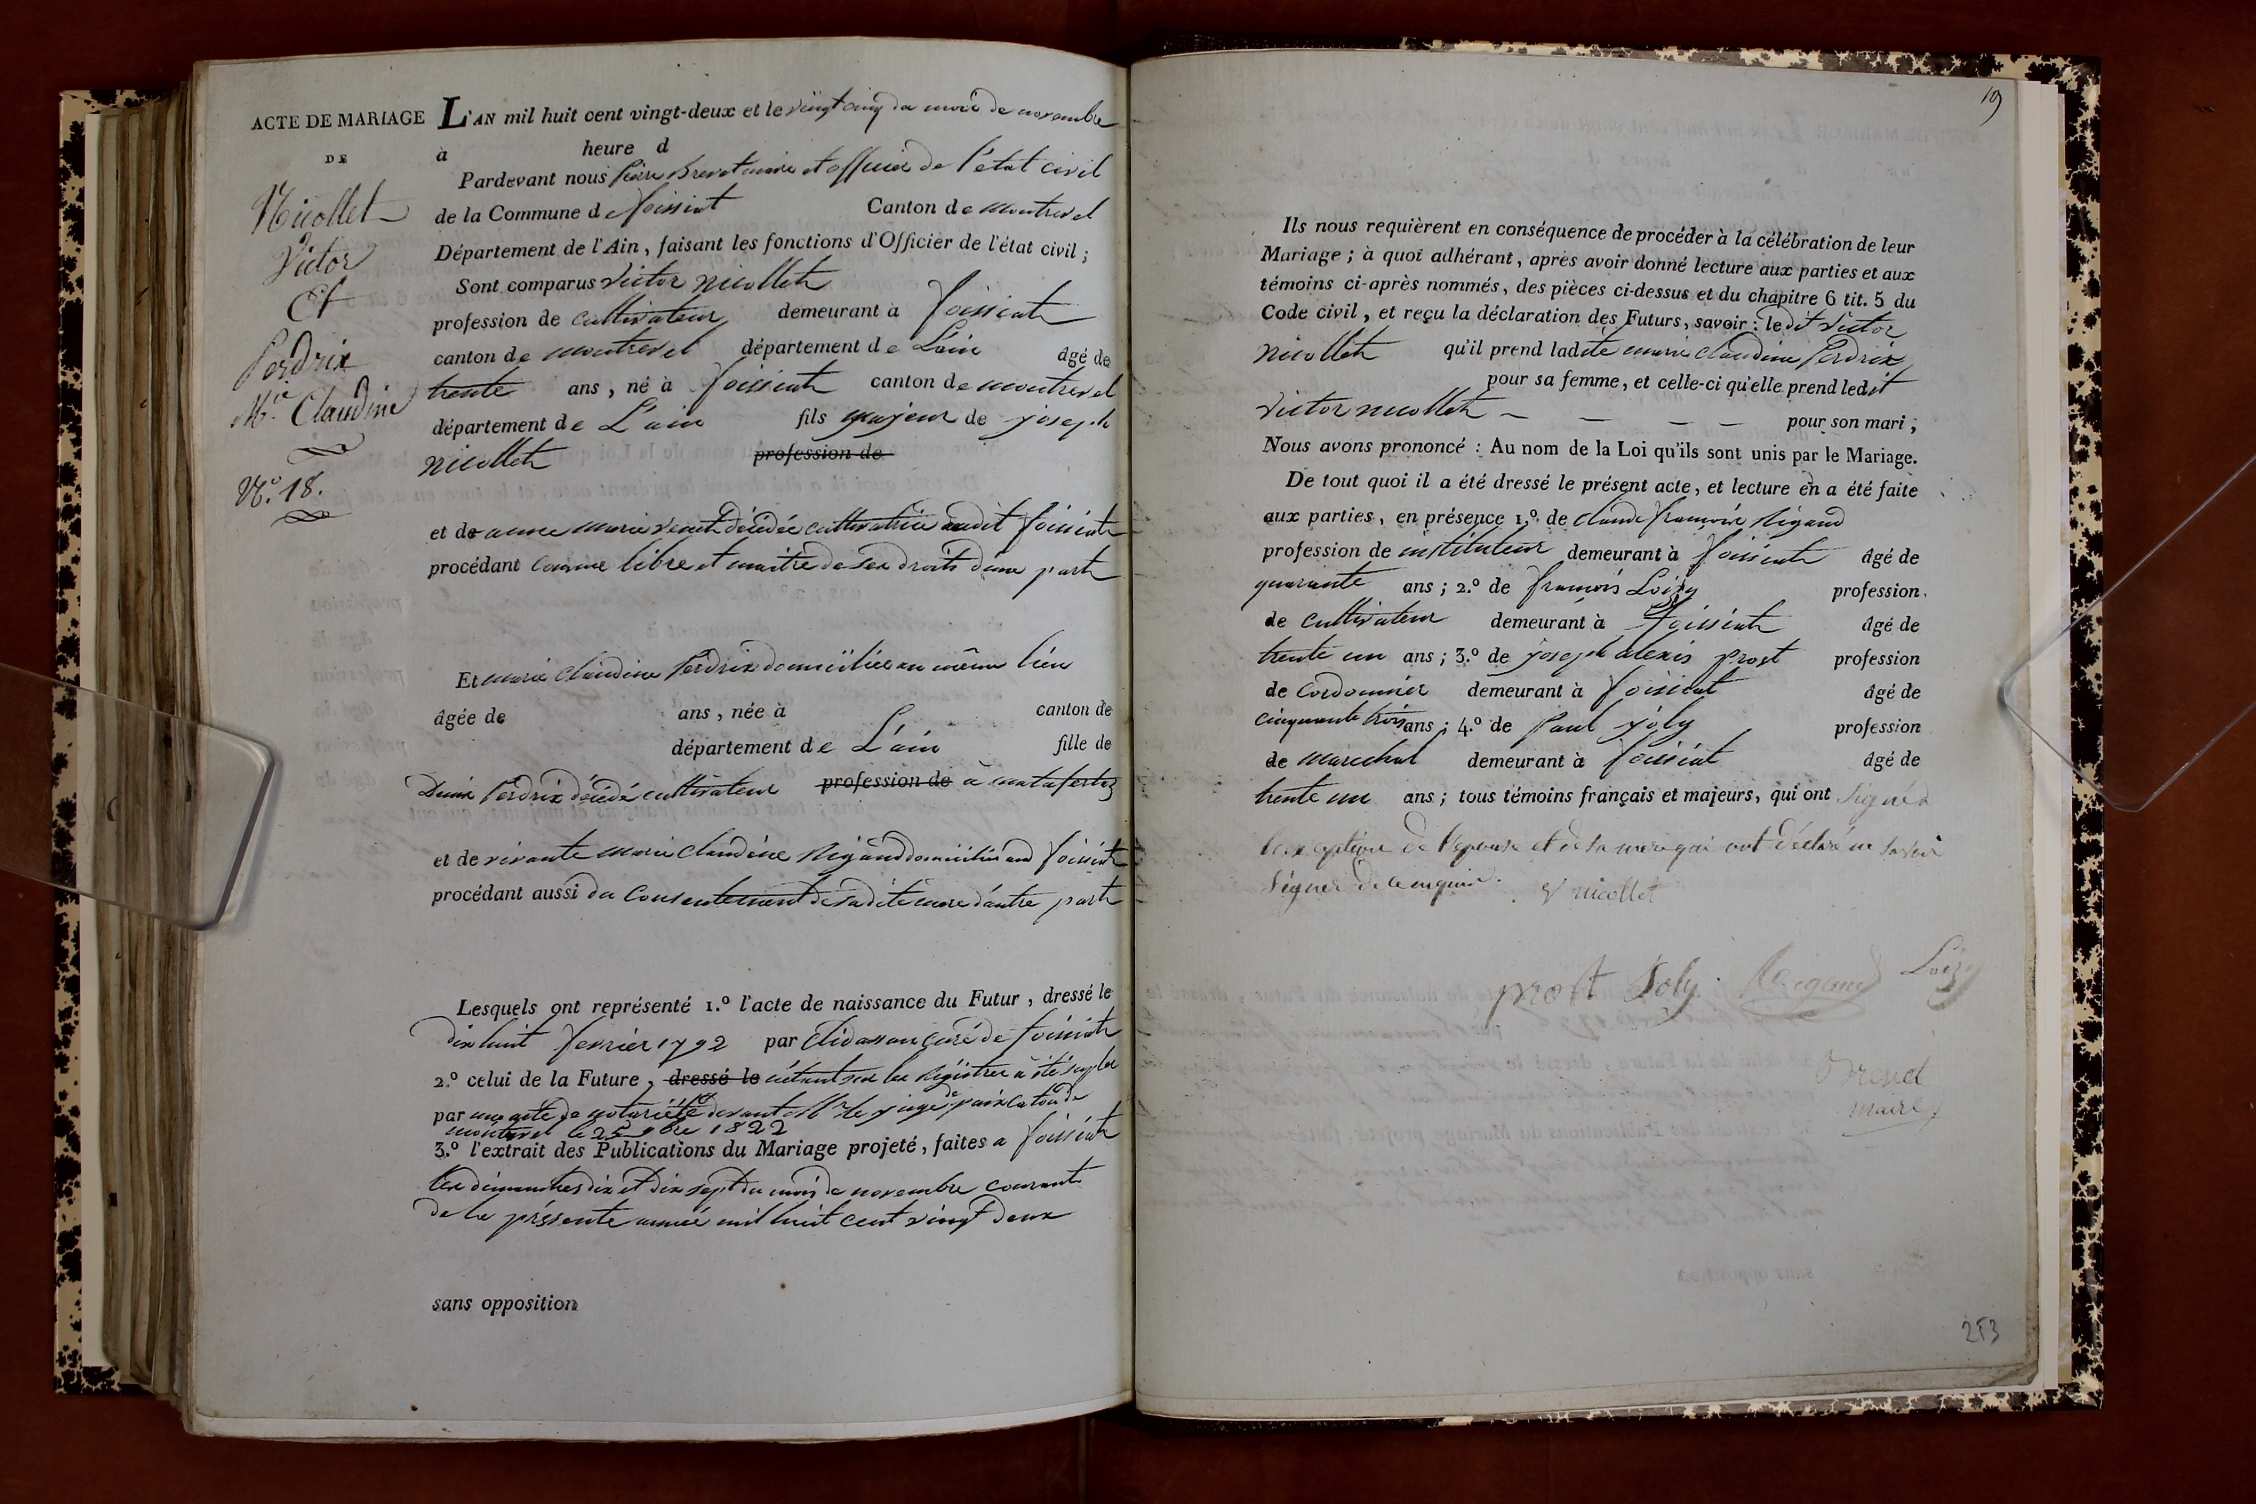 ACTE DE MARIAGE
DE
Nicollet
Victor
Et
Perdrix
M.ie Claudine
N.o 18.
L'AN mil huit cent vingt-deux et le vingt cinq du mois de novembre
à heure d
Pardevant nous pierre Brevet maire et officier de l'état civil
de la Commune de foissiat Canton de montrevel
Département de l'Ain, faisant les fonctions d'Officier de l'état civil ;
Sont comparus victor nicollet
profession de cultivateur demeurant à foissiat
canton de montrevel département de Lain âgé de
trente ans, né à foissiat canton de montrevel
département de L'ain fils majeur de joseph
nicollet profession de
et de anne marie decédée cultivatrice audit foissiat
procédant comme libre et maitre de ses droits d'une part
Et marie Claudine Perdrix domiciliée au même lieu
âgée de ans, née à canton de
département de L'ain fille de
Denis Perdrix décédé cultivateur profession de à
et de vivante marie Claudine Rigaud domiciliée aud foissiat
procédant aussi du consentement de sadite mere d'autre part
Lesquels ont représenté 1.o l'acte de naissance du Futur, dressé le
dix huit fevrier 1792 par curé de foissiat
2.o celui de la Future, dressé le n'étant sur les Régistres a été supléé
par un acte de notoriété devant Mr le juge de paix caton de
montrevel le 25 9bre 1822
3.o l'extrait des Publications du Mariage projeté, faites a foissiat
les dimanches dix et dix sept du mois de novembre courant
de la préssente année mil huit cent vingt deux
sans opposition
19
Ils nous requièrent en conséquence de procéder à la célébration de leur
Mariage ; à quoi adhérant, après avoir donné lecture aux parties et aux
témoins ci-après nommés, des pièces ci-dessus et du chapitre 6 tit. 5 du
Code civil, et reçu la déclaration des Futurs, savoir : ledit Victor
nicollet qu'il prend ladite marie claudine Perdrix
pour sa femme, et celle-ci qu'elle prend ledit
victor nicollet — — — — pour son mari ;
Nous avons prononcé : Au nom de la Loi qu'ils sont unis par le Mariage.
De tout quoi il a été dressé le présent acte, et lecture en a été faite
aux parties, en présence 1.o de claude françois Rigaud
profession de instituteur demeurant à foissiat âgé de
quarante ans ; 2.o de françois Loisy profession
de cultivateur demeurant à foissiat âgé de
trente un ans ; 3.o de joseph alexis prost profession
de cordonnier demeurant à foissiat âgé de
cinquante trois ans ; 4.o de Paul joly profession
de marechal demeurant à foissiat âgé de
trente un ans ; tous témoins français et majeurs, qui ont signé a
lexception de l'epouse et de sa mere qui ont déclaré ne savoir
signer de ce enquis. V nicollet
prost Joly Rigaud Loisy
Brevet
maire
253